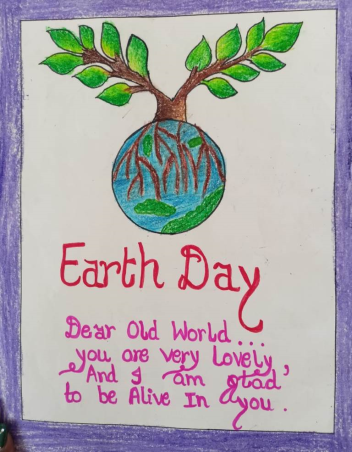 Earth Day
Dear Old World...
you are very lovely,
And I am glad
to be Alive In you.